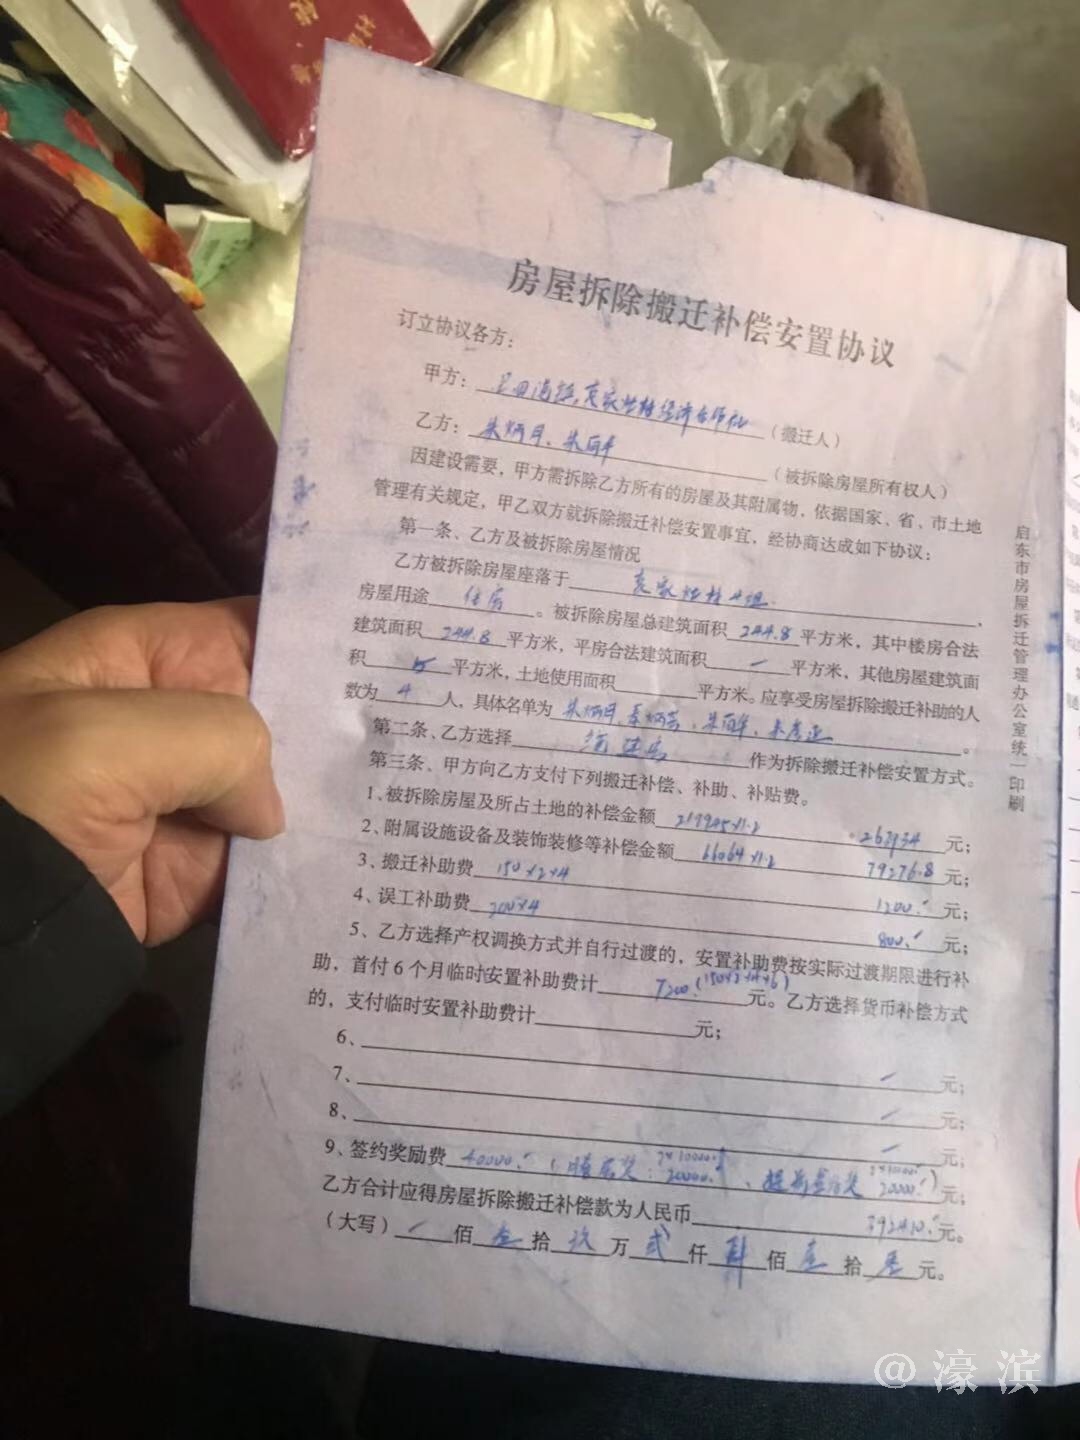 房屋拆除搬迁补偿安置协议
订立协议各方：
甲方： 经济合作社（搬迁人）
乙方：朱炳月、朱 （被拆除房屋所有权人）
因建设需要，甲方需拆除乙方所有的房屋及其附属物，依据国家、省、市土地
管理有关规定，甲乙双方就拆除搬迁补偿安置事宜，经协商达成如下协议：
第一条、乙方及被拆除房屋情况
乙方被拆除房屋座落于 ，
房屋用途 住房 。被拆除房屋总建筑面积 244.8 平方米，其中楼房合法
建筑面积 244.8 平方米，平房合法建筑面积 — 平方米，其他房屋建筑面
积 平方米，土地使用面积 平方米。应享受房屋拆除搬迁补助的人
数为 4 人，具体名单为 朱炳月、 。
第二条、乙方选择 作为拆除搬迁补偿安置方式。
第三条、甲方向乙方支付下列搬迁补偿、补助、补贴费。
1、被拆除房屋及所占土地的补偿金额 219945×1.2 263934 元；
2、附属设施设备及装饰装修等补偿金额 66064×1.2 79276.8 元；
3、搬迁补助费 150×2×4 1200. 元；
4、误工补助费 200×4 800. 元；
5、乙方选择产权调换方式并自行过渡的，安置补助费按实际过渡期限进行补
助，首付6个月临时安置补助费计 7200.（150×2×4×6） 元。乙方选择货币补偿方式
的，支付临时安置补助费计 元；
6、 — 元；
7、 — 元；
8、 — 元；
9、签约奖励费 40000.（ 奖：2×10000. 20000. 、提前签约奖 2×10000. 20000.）元；
乙方合计应得房屋拆除搬迁补偿款为人民币 392410. 元。
（大写） — 佰 叁 拾 玖 万 贰 仟 肆 佰 壹 拾 元。
启东市房屋拆迁管理办公室统一印刷
@濠滨